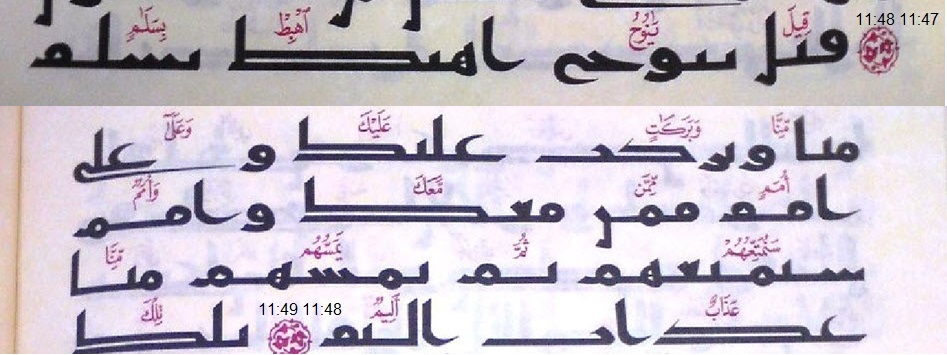 11:48 11:47
قِيلَ يَٰنُوحُ ٱهْبِطْ بِسَلَٰمٍ
قيل ينوح اهبط بسلم
مِّنَّا وَبَرَكَٰتٍ عَلَيْكَ وَعَلَىٰٓ
منا وبركت عليك وعلى
أُمَمٍ مِّمَّن مَّعَكَ وَأُمَمٌ
امم ممن معك وامم
سَنُمَتِّعُهُمْ ثُمَّ يَمَسُّهُم مِّنَّا
سنمتعهم ثم يمسهم منا
عَذَابٌ أَلِيمٌ 11:49 11:48 تِلْكَ
عذاب اليم تلك